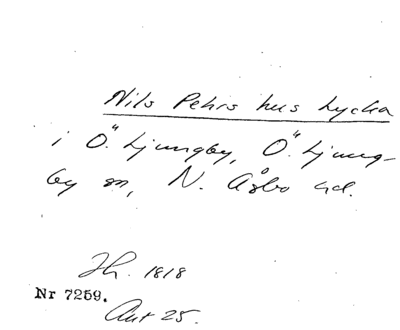 Nils Pehrs hus Lycka
i Ö. Ljungby, Ö. Ljung-
by sn, N. Åsbo hd.
Jh. 1818
Nr 7259.
Akt 25.